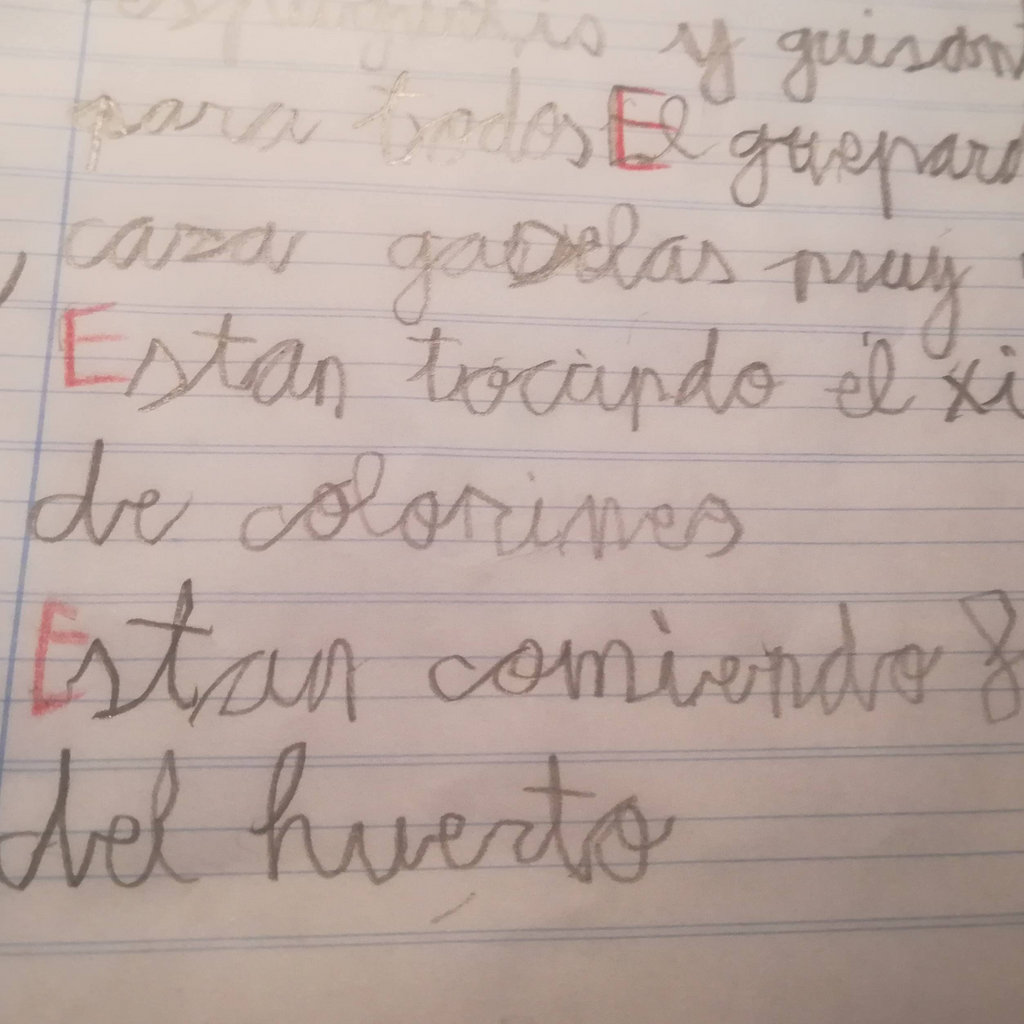 y guisan
para todos El guepard
caza gacelas muy
Estan tocando el xi
de colorines
Estan comiendo
del huerto